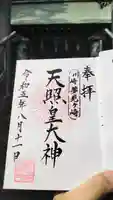 奉拝
川崎
天照皇大神
令和五年八月十一日